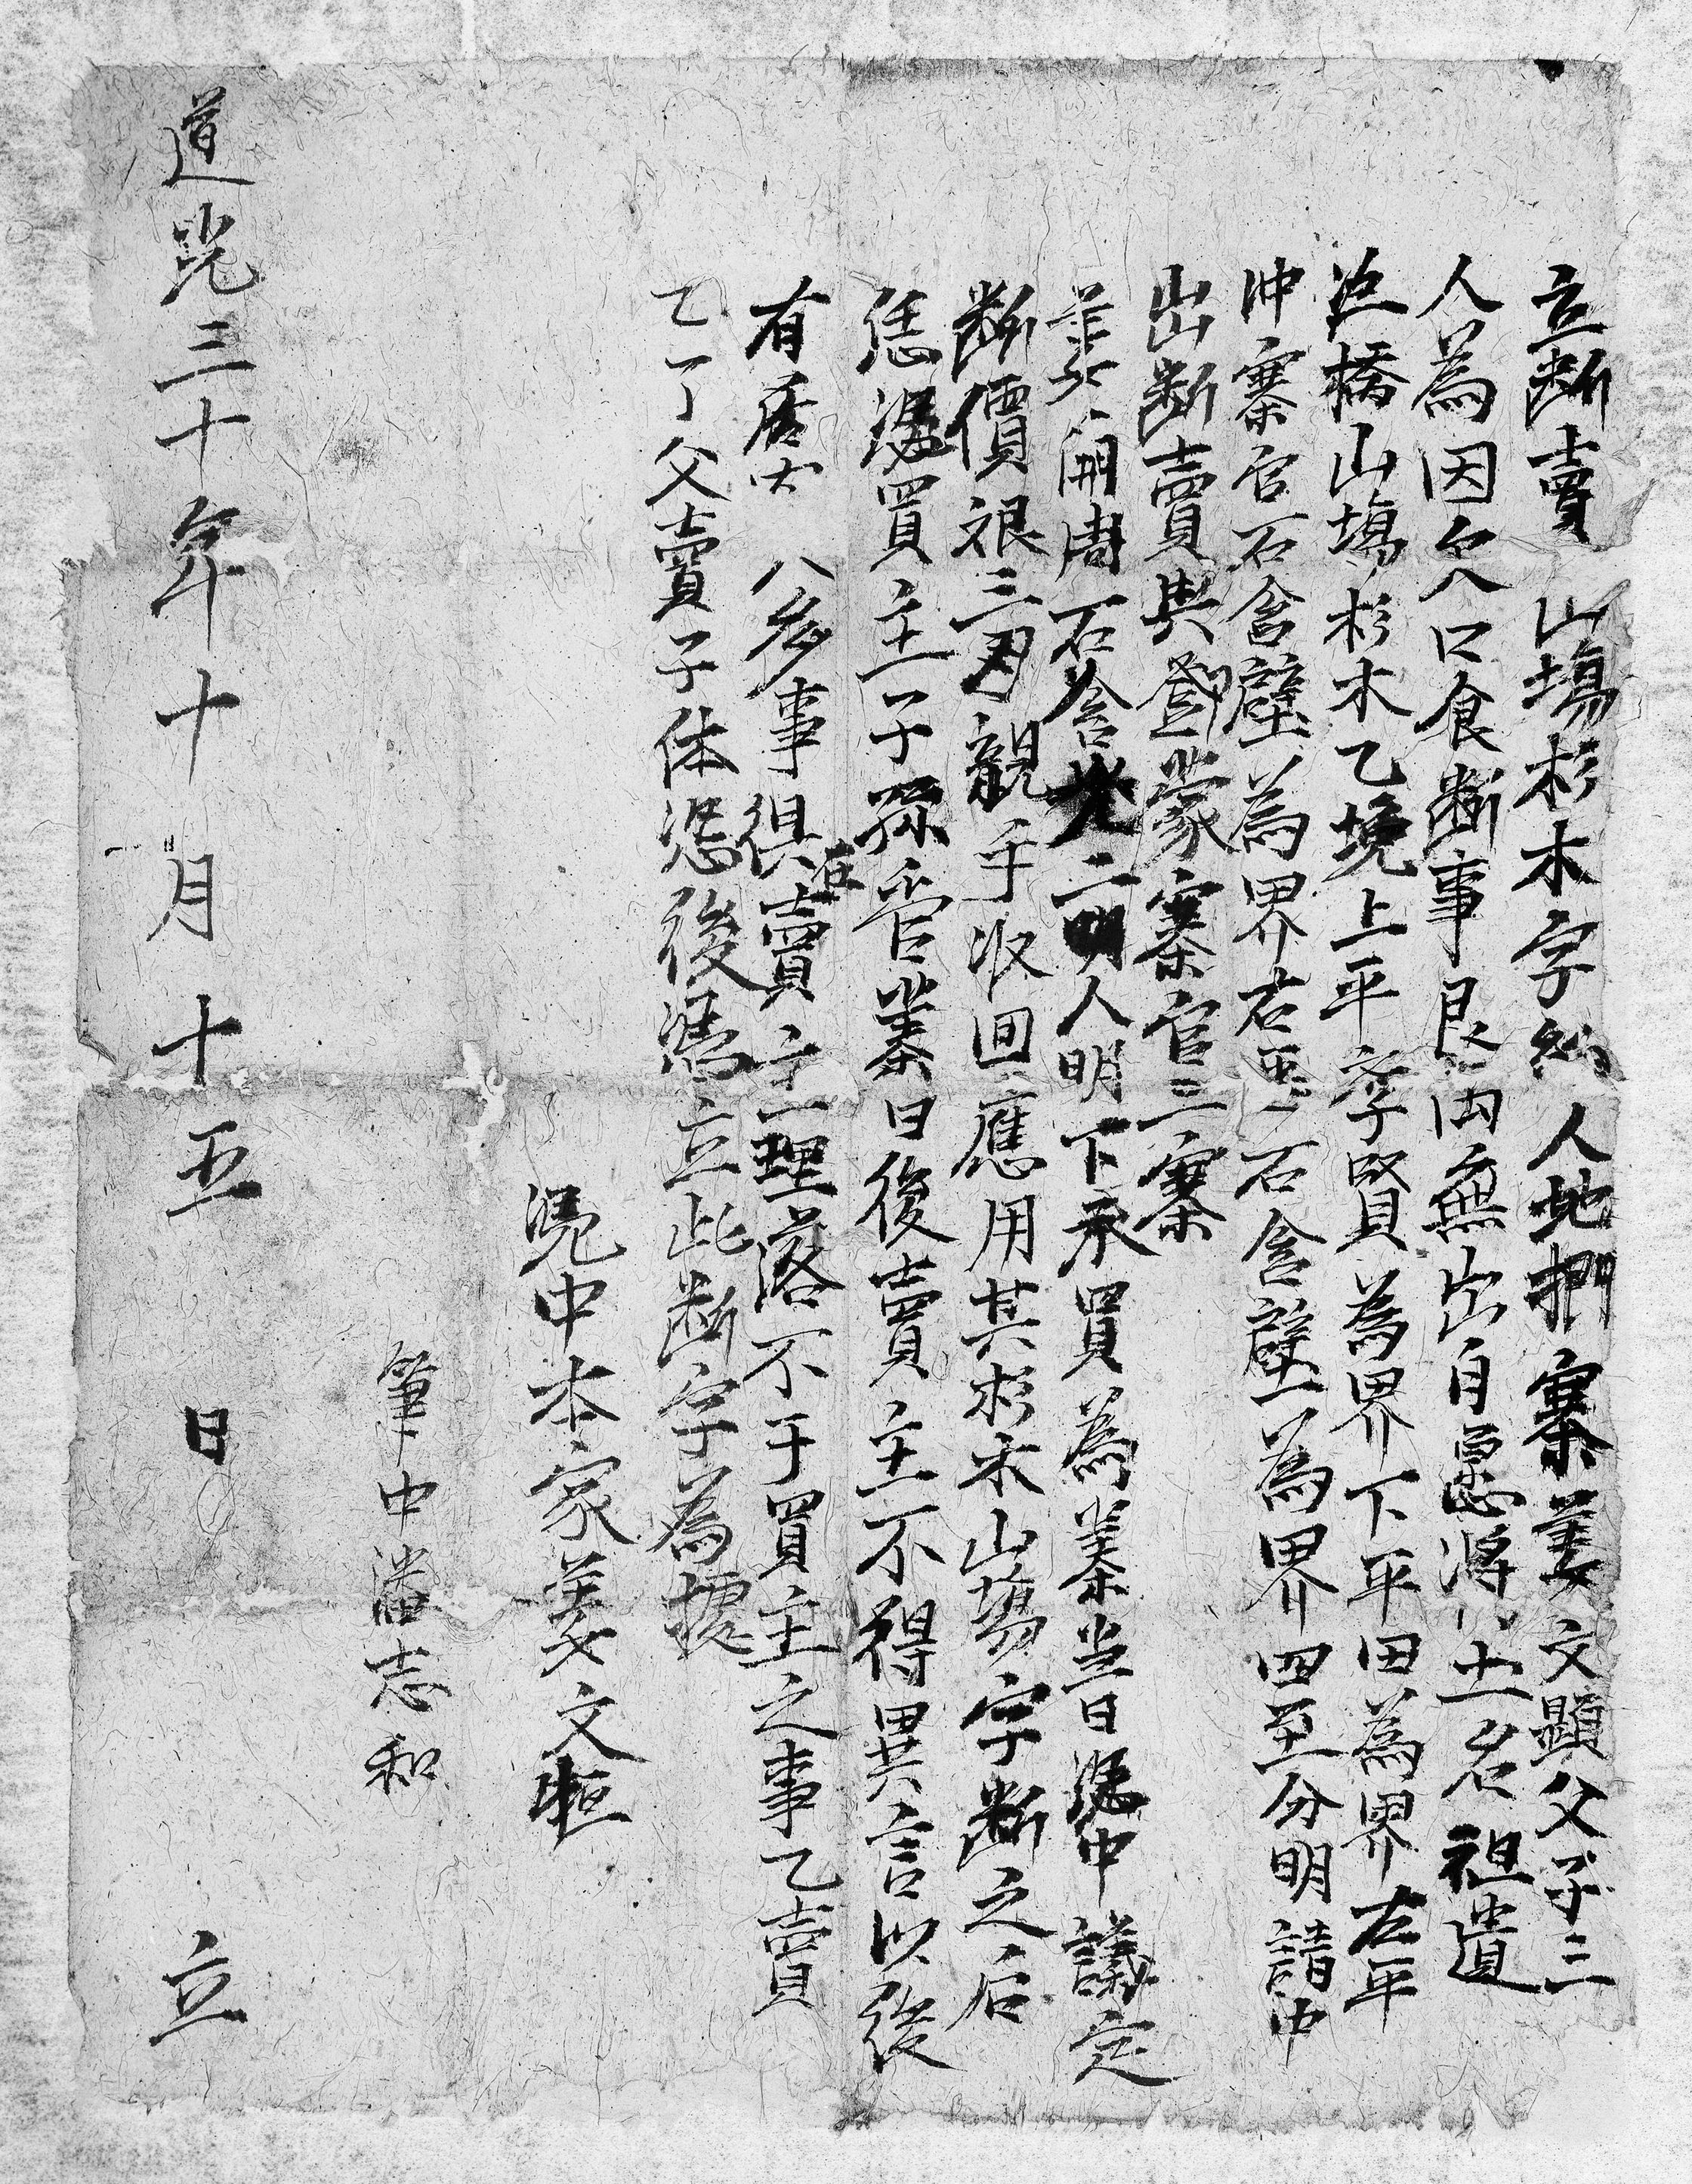 立断賣山塲杉木字約人地捫寨姜文顯父子三
人為因欠口食断事艮由無出自愿將土名祖遺
橋山塲杉木乙塊上平李賢為界下平田為界左平
冲寨官石含壁為界右平石含壁為界四至分明請中
出断賣與鄧蒙寨官三寨
姜開周石含二人明下承買為業当日凭中議定
断價銀三親手收回應用其杉木山塲字断之后
恁凴買主子孫管業日後賣主不得異言以後
有八多事俱在賣主理落不干買主之事乙賣
乙了父賣子休恐後凴立此断字為據
凴中本家姜文
筆中潘志和
道光三十年十月十五日立